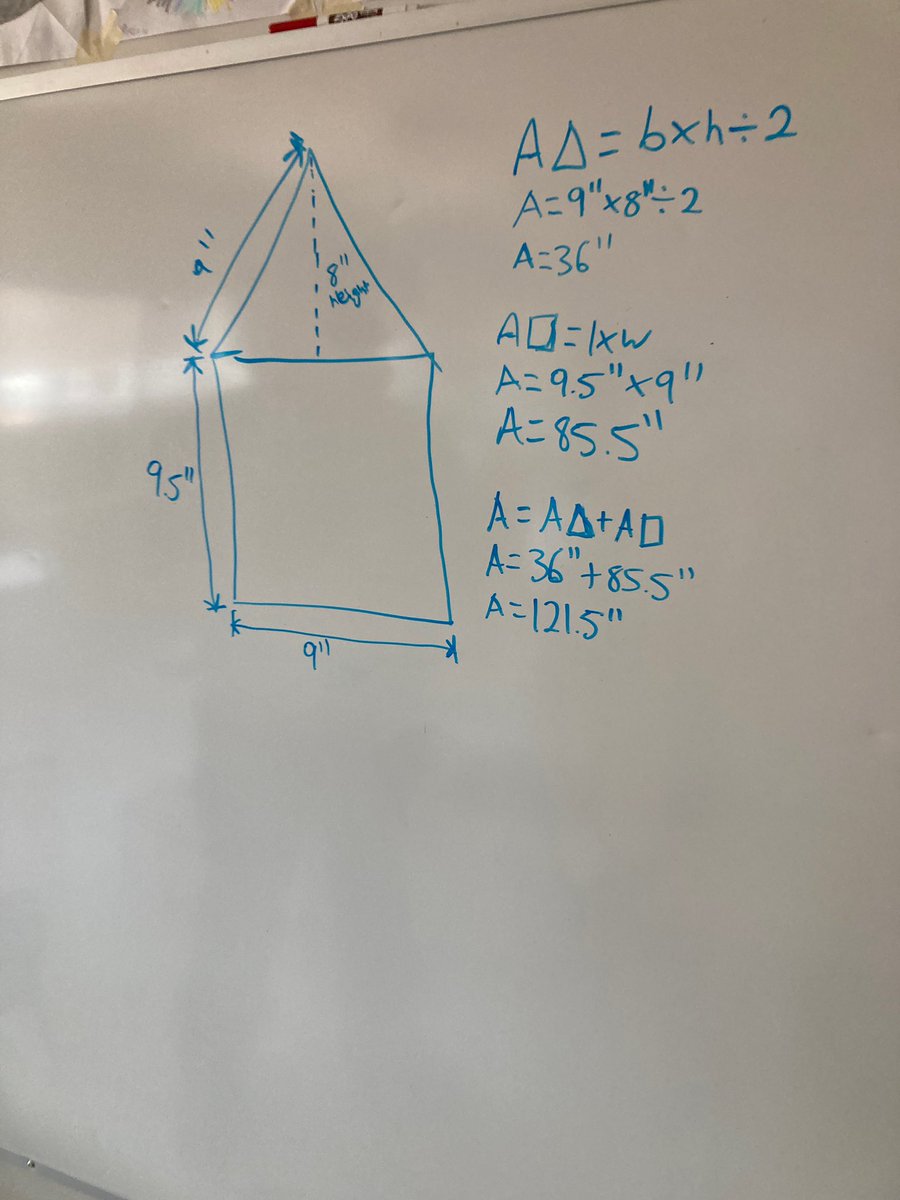 9"
8"
height
9.5"
9"
A△ = b×h÷2
A=9"×8"÷2
A=36"
A□=l×w
A=9.5"×9"
A=85.5"
A=A△+A□
A=36"+85.5"
A=121.5"